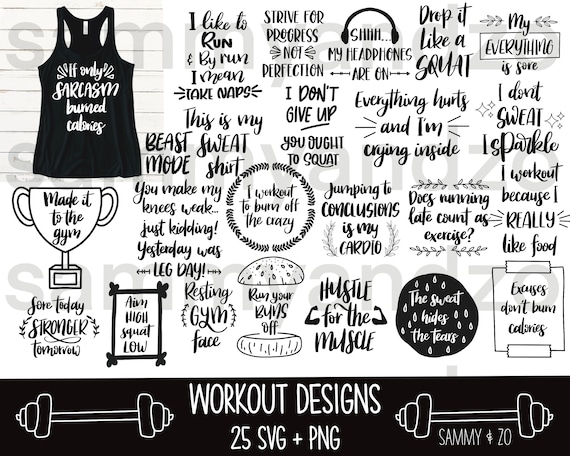 If only
SARCASM
burned
calories
I like to
Run
& By run
I mean
TAKE NAPS
STRIVE FOR
PROGRESS
NOT
PERFECTION
SHHH...
MY HEADPHONES
ARE ON
Drop it
Like a
SQUAT
My
EVERYTHING
is sore
This is my
BEAST
MODE
SWEAT
shirt
I DON'T
GIVE UP
YOU OUGHT
TO SQUAT
Everything hurts
and I'm
crying inside
I dont
SWEAT
I sparkle
Made it
to the
gym
You make my
knees weak...
just kidding!
Yesterday was
LEG DAY!
I workout
to burn off
the crazy
Jumping to
CONCLUSIONS
is my
CARDIO
Does running
late count as
exercise?
I workout
because I
REALLY
like food
Sore today
STRONGER
tomorrow
Aim
HIGH
squat
LOW
Resting
GYM
face
Run your
BUNS
off
HUSTLE
for the
MUSCLE
The sweat
hides
the tears
Excuses
don't burn
calories
sammyandzo
sammyandzo
WORKOUT DESIGNS
25 SVG + PNG
SAMMY & ZO